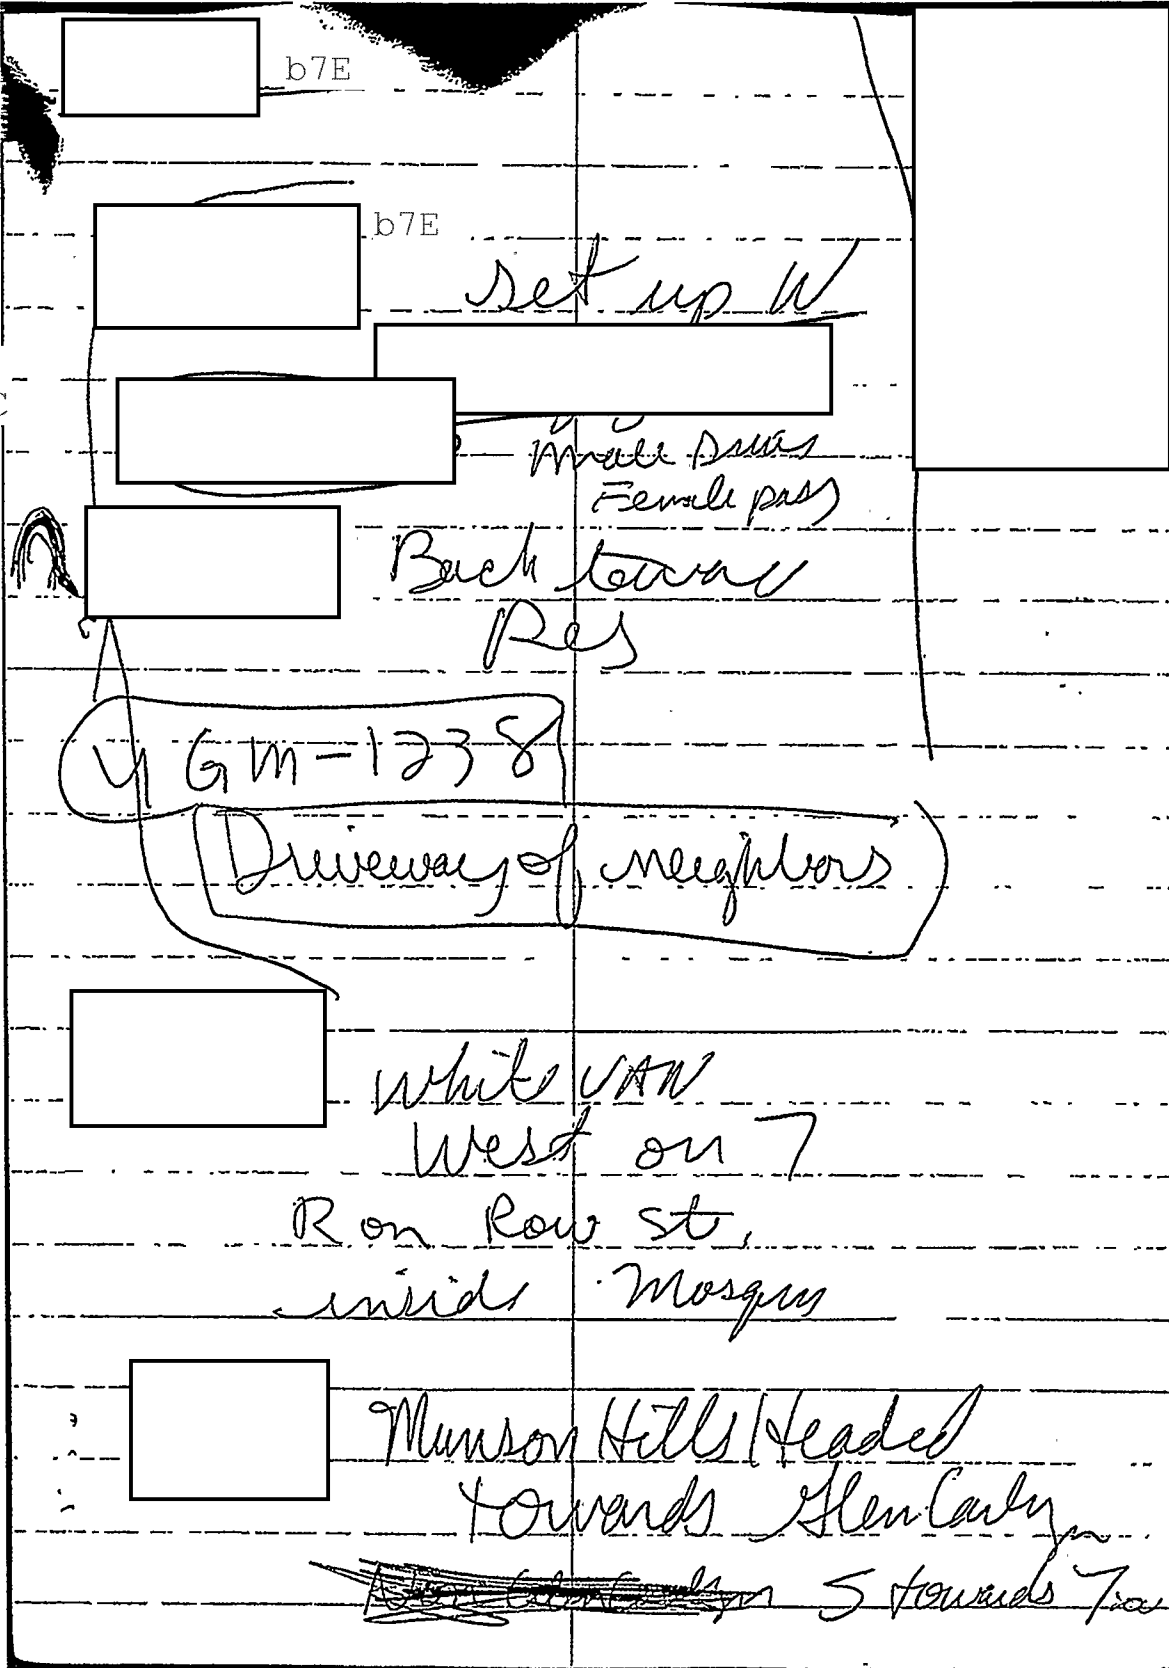 b7E
b7E
set up W
male drives
Female pass
Back toward
Res
YGM-1238
Driveway of neighbors
White VAN
West on 7
R on Row St,
inside Mosque
Munson Hills Headed
towards Glen Carlyn
S towards 7